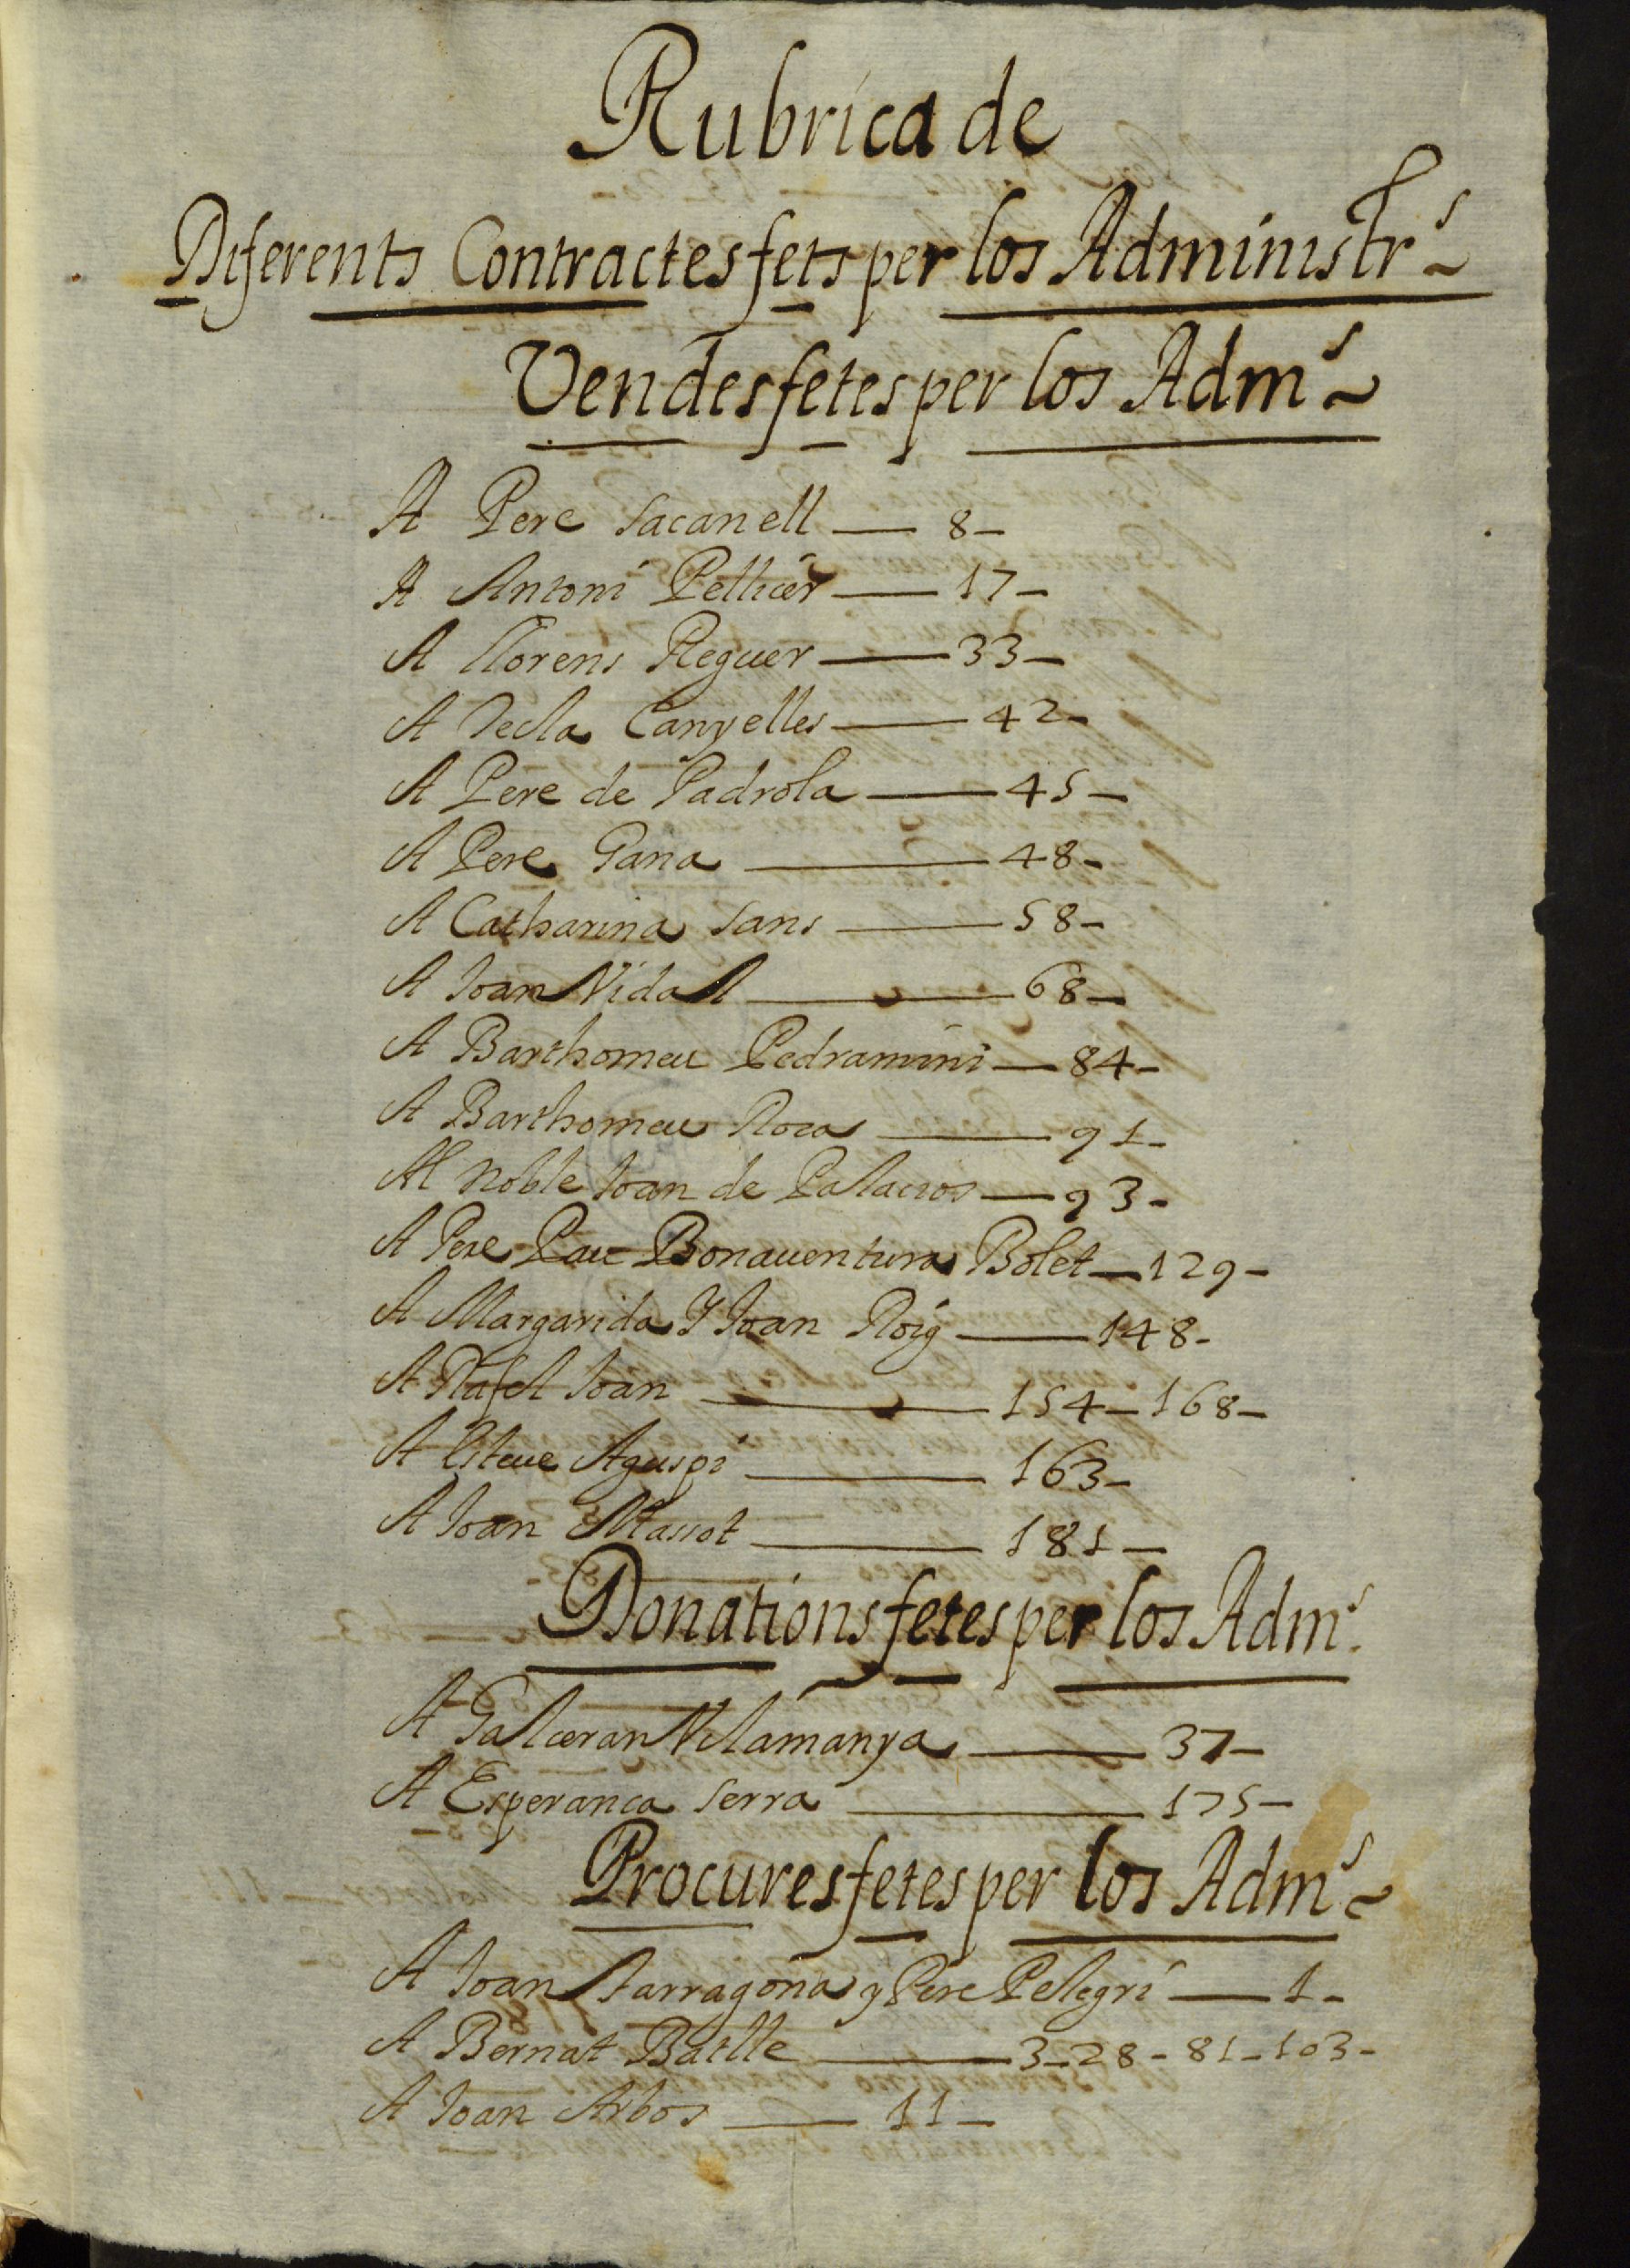 Rubrica de
Diferents Contractes fets per los Administrs
Vendes fetes per los Adms
A Pere Sacanell — 8 -
A Antoni Pellicer — 17 -
A Llorens Reguer — 33 -
A Tecla Canyelles — 42 -
A Pere de Padrola — 45 -
A Pere Gana — 48 -
A Catharina Sans — 58 -
A Joan Vidal — 68 -
A Barthomeu Pedramini — 84 -
A Barthomeu Roca — 91 -
Al Noble Joan de Palacios — 93 -
A Pere Pau Bonauentura Bolet — 129 -
A Margarida Y Joan Roig — 148 -
A Rafel Joan — 154 - 168 -
A Esteue Aguspi — 163 -
A Joan Massot — 181 -
Donations fetes per los Adms.
A Galceran Vilamanya — 37 -
A Esperanca Serra — 175 -
Procures fetes per los Adms
A Joan Tarragona y Pere Pelegri — 1 -
A Bernat Batlle — 3 - 28 - 81 - 103 -
A Joan Arbos — 11 -